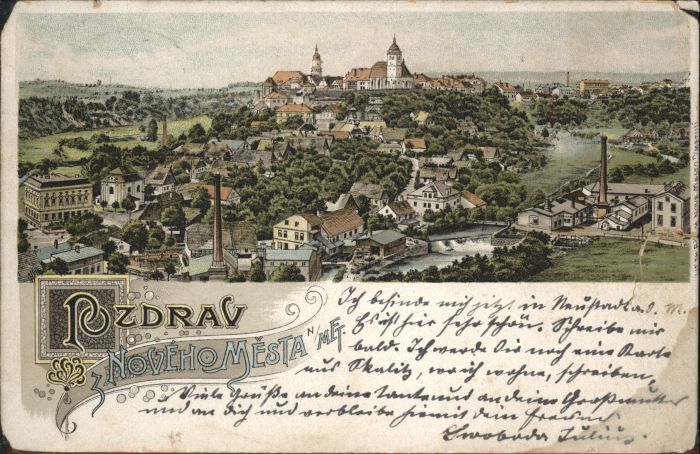 POZDRAV
z NOVÉHO MĚSTA N MET.
Ich befinde mich jetzt in Neustadt a. d. M.
Es ist hier sehr schön. Schreibe mir
bald. Ich werde Dir noch eine Karte
aus Skalitz, wo ich wohne, schreiben.
Viele Grüße an deine Tante und an deine Großmutter
und an dich und verbleibe hiemit dein Freund
Swoboda Julius.